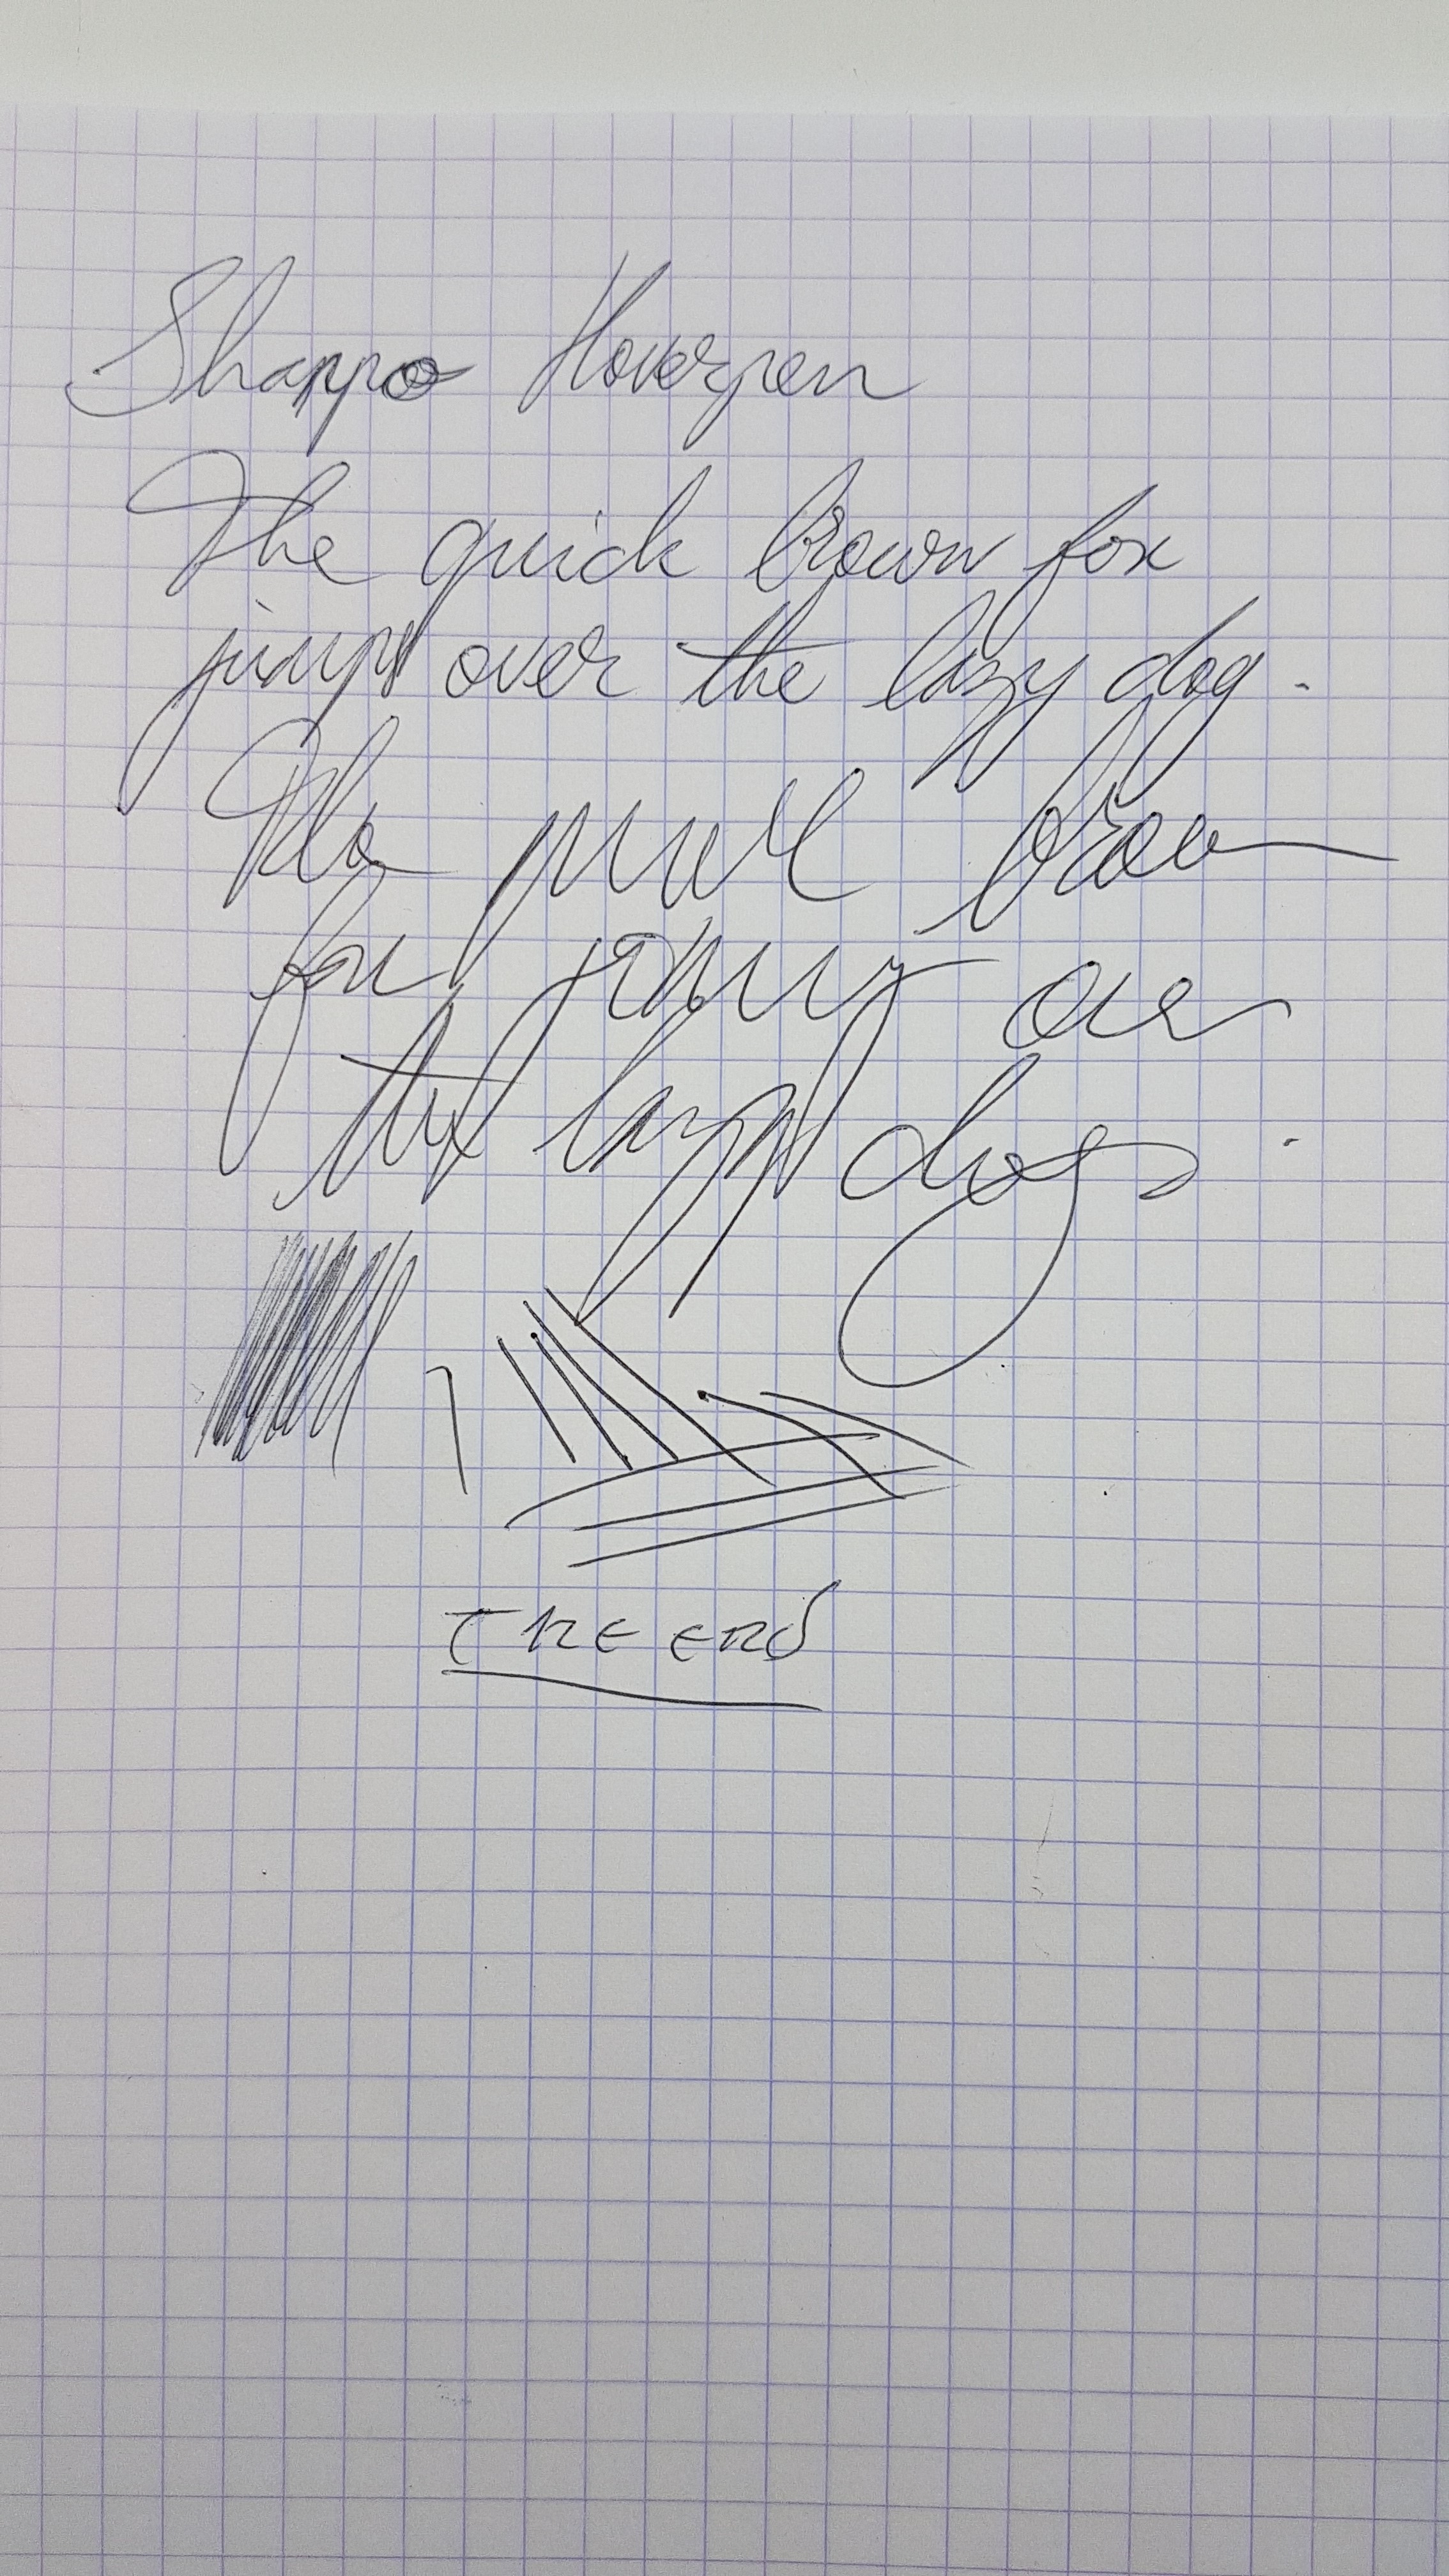 Shappo Hoverpen
The quick brown fox
jumps over the lazy dog.
The brown
fox over
the lazy dog.
THE END